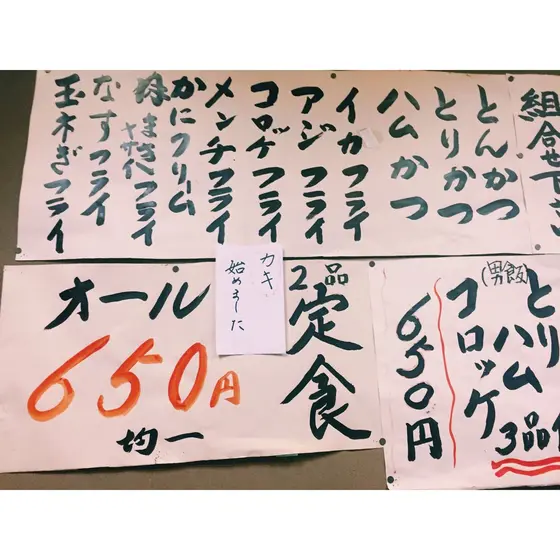 組合せ
とんかつ
とりかつ
ハムかつ
イカフライ
アジフライ
コロッケフライ
メンチフライ
かにクリーム
豚まきフライ
ヤサイ
なすフライ
玉ネギフライ
2品
定食
カキ
始めました
オール
650円
均一
とり
ハム
コロッケ
(男飯)
3品
650円